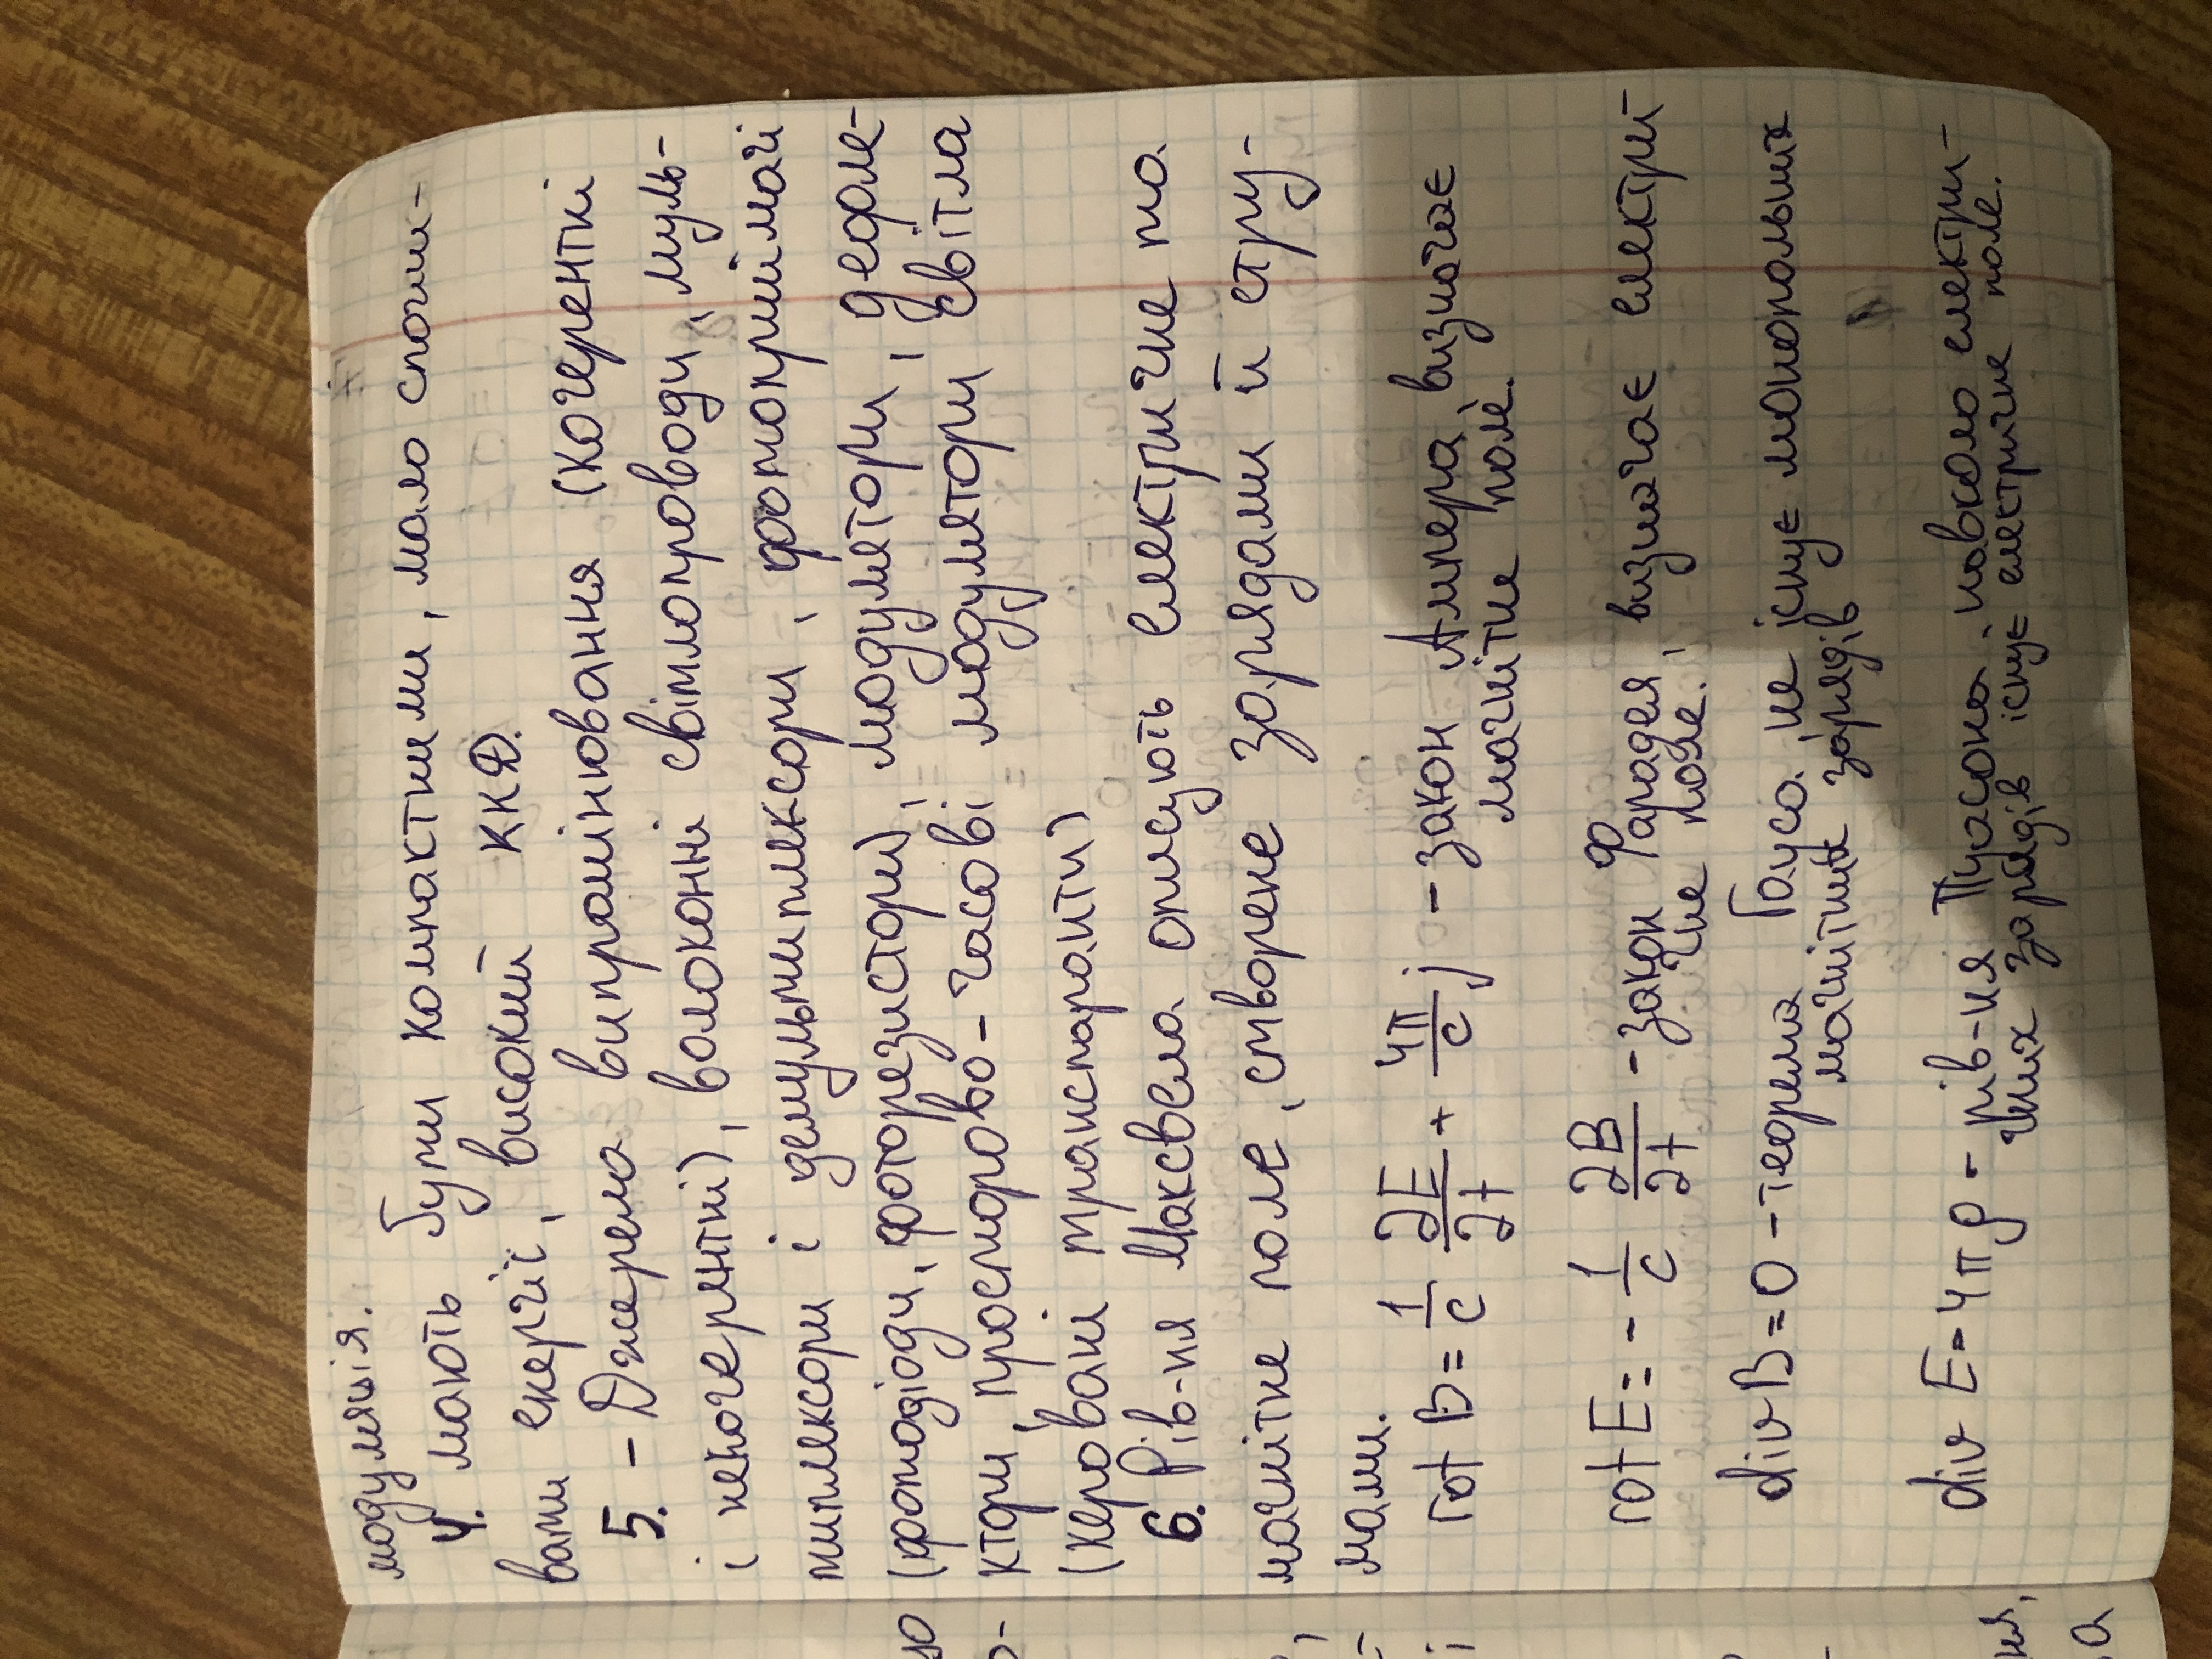 модуляція.
4. мають бути компактними, мало спожи-
вати енергії, високий ККД.
5. – Джерела випромінювання (когерентні
і некогерентні), волоконні світлопроводи, муль-
типлексори і демультиплексори, фотоприймачі
(фотодіоди, фоторезистори), модулятори, дефле-
ктори, просторово-часові модулятори світла
(керовані транспаранти)
6. Рів-ня Максвела описують електричне та
магнітне поле, створене зарядами й стру-
мами.
rot B = 1/c ∂E/∂t + 4π/c j – закон Ампера, визначає
магнітне поле.
rot E = - 1/c ∂B/∂t – закон Фарадея, визначає електри-
чне поле.
div B = 0 – теорема Гауса, не існує монопольних
магнітних зарядів
div E = 4πρ – рів-ня Пуасона, навколо електри-
чних зарядів існує електричне поле.